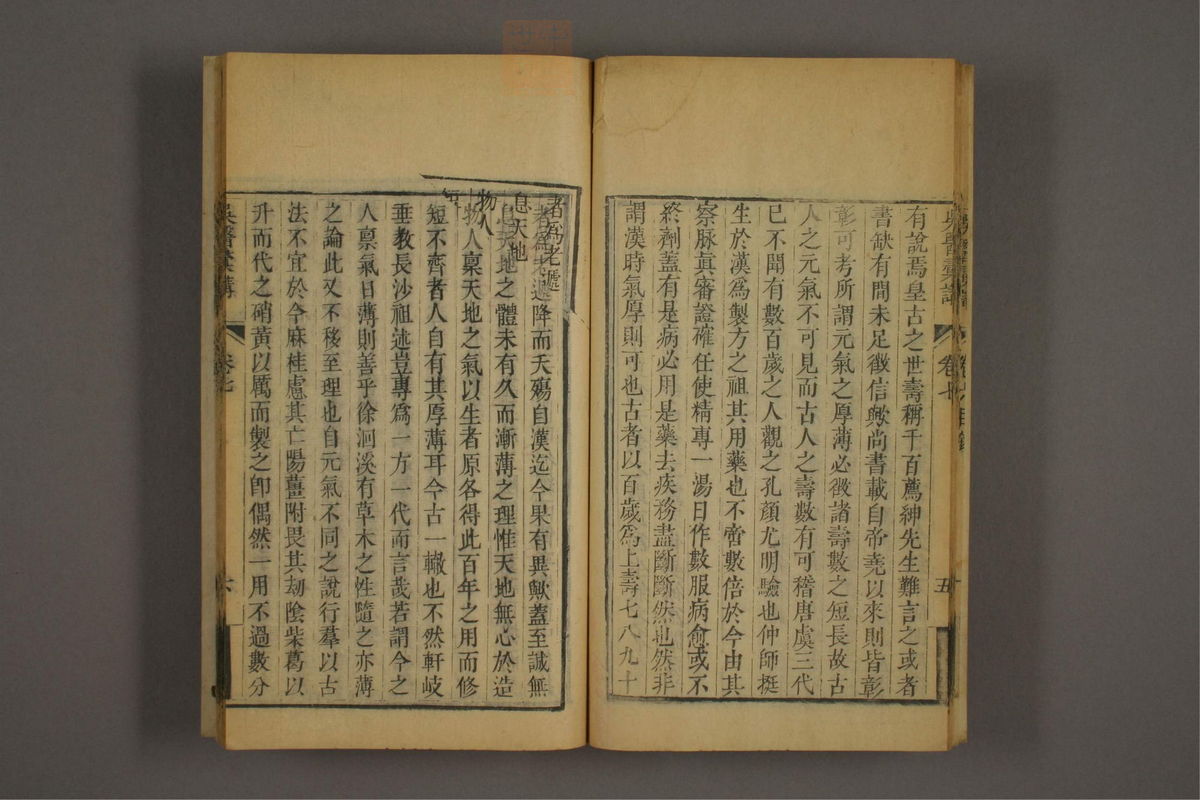 有說焉皇古之世壽稱千百薦紳先生難言之或者
書缺有間未足徵信歟尚書載自帝堯以來則皆彰
彰可考所謂元氣之厚薄必徵諸壽數之短長故古
人之元氣不可見而古人之壽數有可稽唐虞三代
已不聞有數百歲之人觀之孔顏尤明驗也仲師挺
生於漢爲製方之祖其用藥也不啻數倍於今由其
察脉眞審證確任使精專一湯日作數服病愈或不
終劑蓋有是病必用是藥去疾務盡斷斷然也然非
謂漢時氣厚則可也古者以百歲爲上壽七八九十
卷七
五
者爲老遞降而夭殤自漢迄今果有異歟蓋至誠無
息天地之體未有久而漸薄之理惟天地無心於造
物人稟天地之氣以生者原各得此百年之用而修
短不齊者人自有其厚薄耳今古一轍也不然軒岐
垂教長沙祖述豈專爲一方一代而言哉若謂今之
人稟氣日薄則善乎徐洄溪有草木之性隨之亦薄
之論此又不移至理也自元氣不同之說行羣以古
法不宜於今麻桂慮其亡陽薑附畏其劫陰柴葛以
升而代之硝黃以厲而製之卽偶然一用不過數分
吳醫彙講
卷七
六
者爲老遞
息天地
物人
短